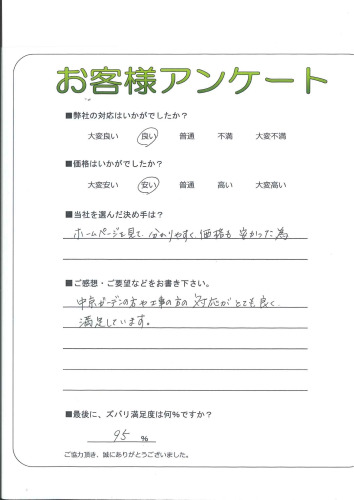 お客様アンケート
■弊社の対応はいかがでしたか？
大変良い 良い 普通 不満 大変不満
■価格はいかがでしたか？
大変安い 安い 普通 高い 大変高い
■当社を選んだ決め手は？
ホームページを見て、分かりやすく、価格も安かった為
■ご感想・ご要望などをお書き下さい。
中京ガーデンの方や工事の方の対応がとても良く、
満足しています。
■最後に、ズバリ満足度は何％ですか？
95 ％
ご協力頂き、誠にありがとうございました。